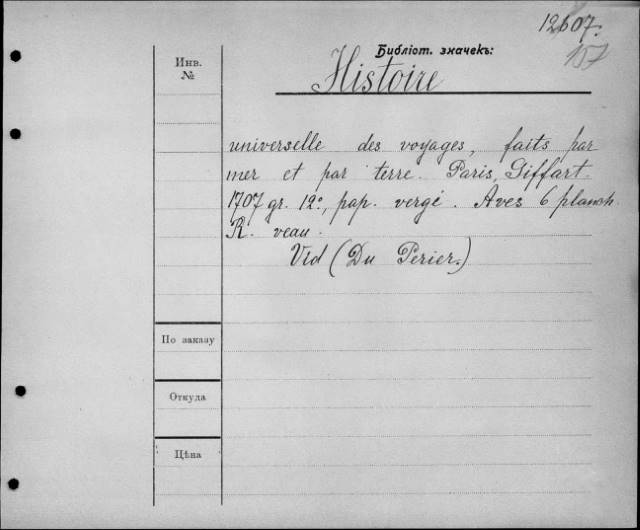 12607.
157
Библіот. значекъ:
Инв.
№
Histoire
universelle des voyages, faits par
mer et par terre. Paris, Giffart.
1707 gr. 12°, pap. vergé. Aves 6 planch.
R. veau.
Vid (Du Perier.)
По заказу
Откуда
Цѣна